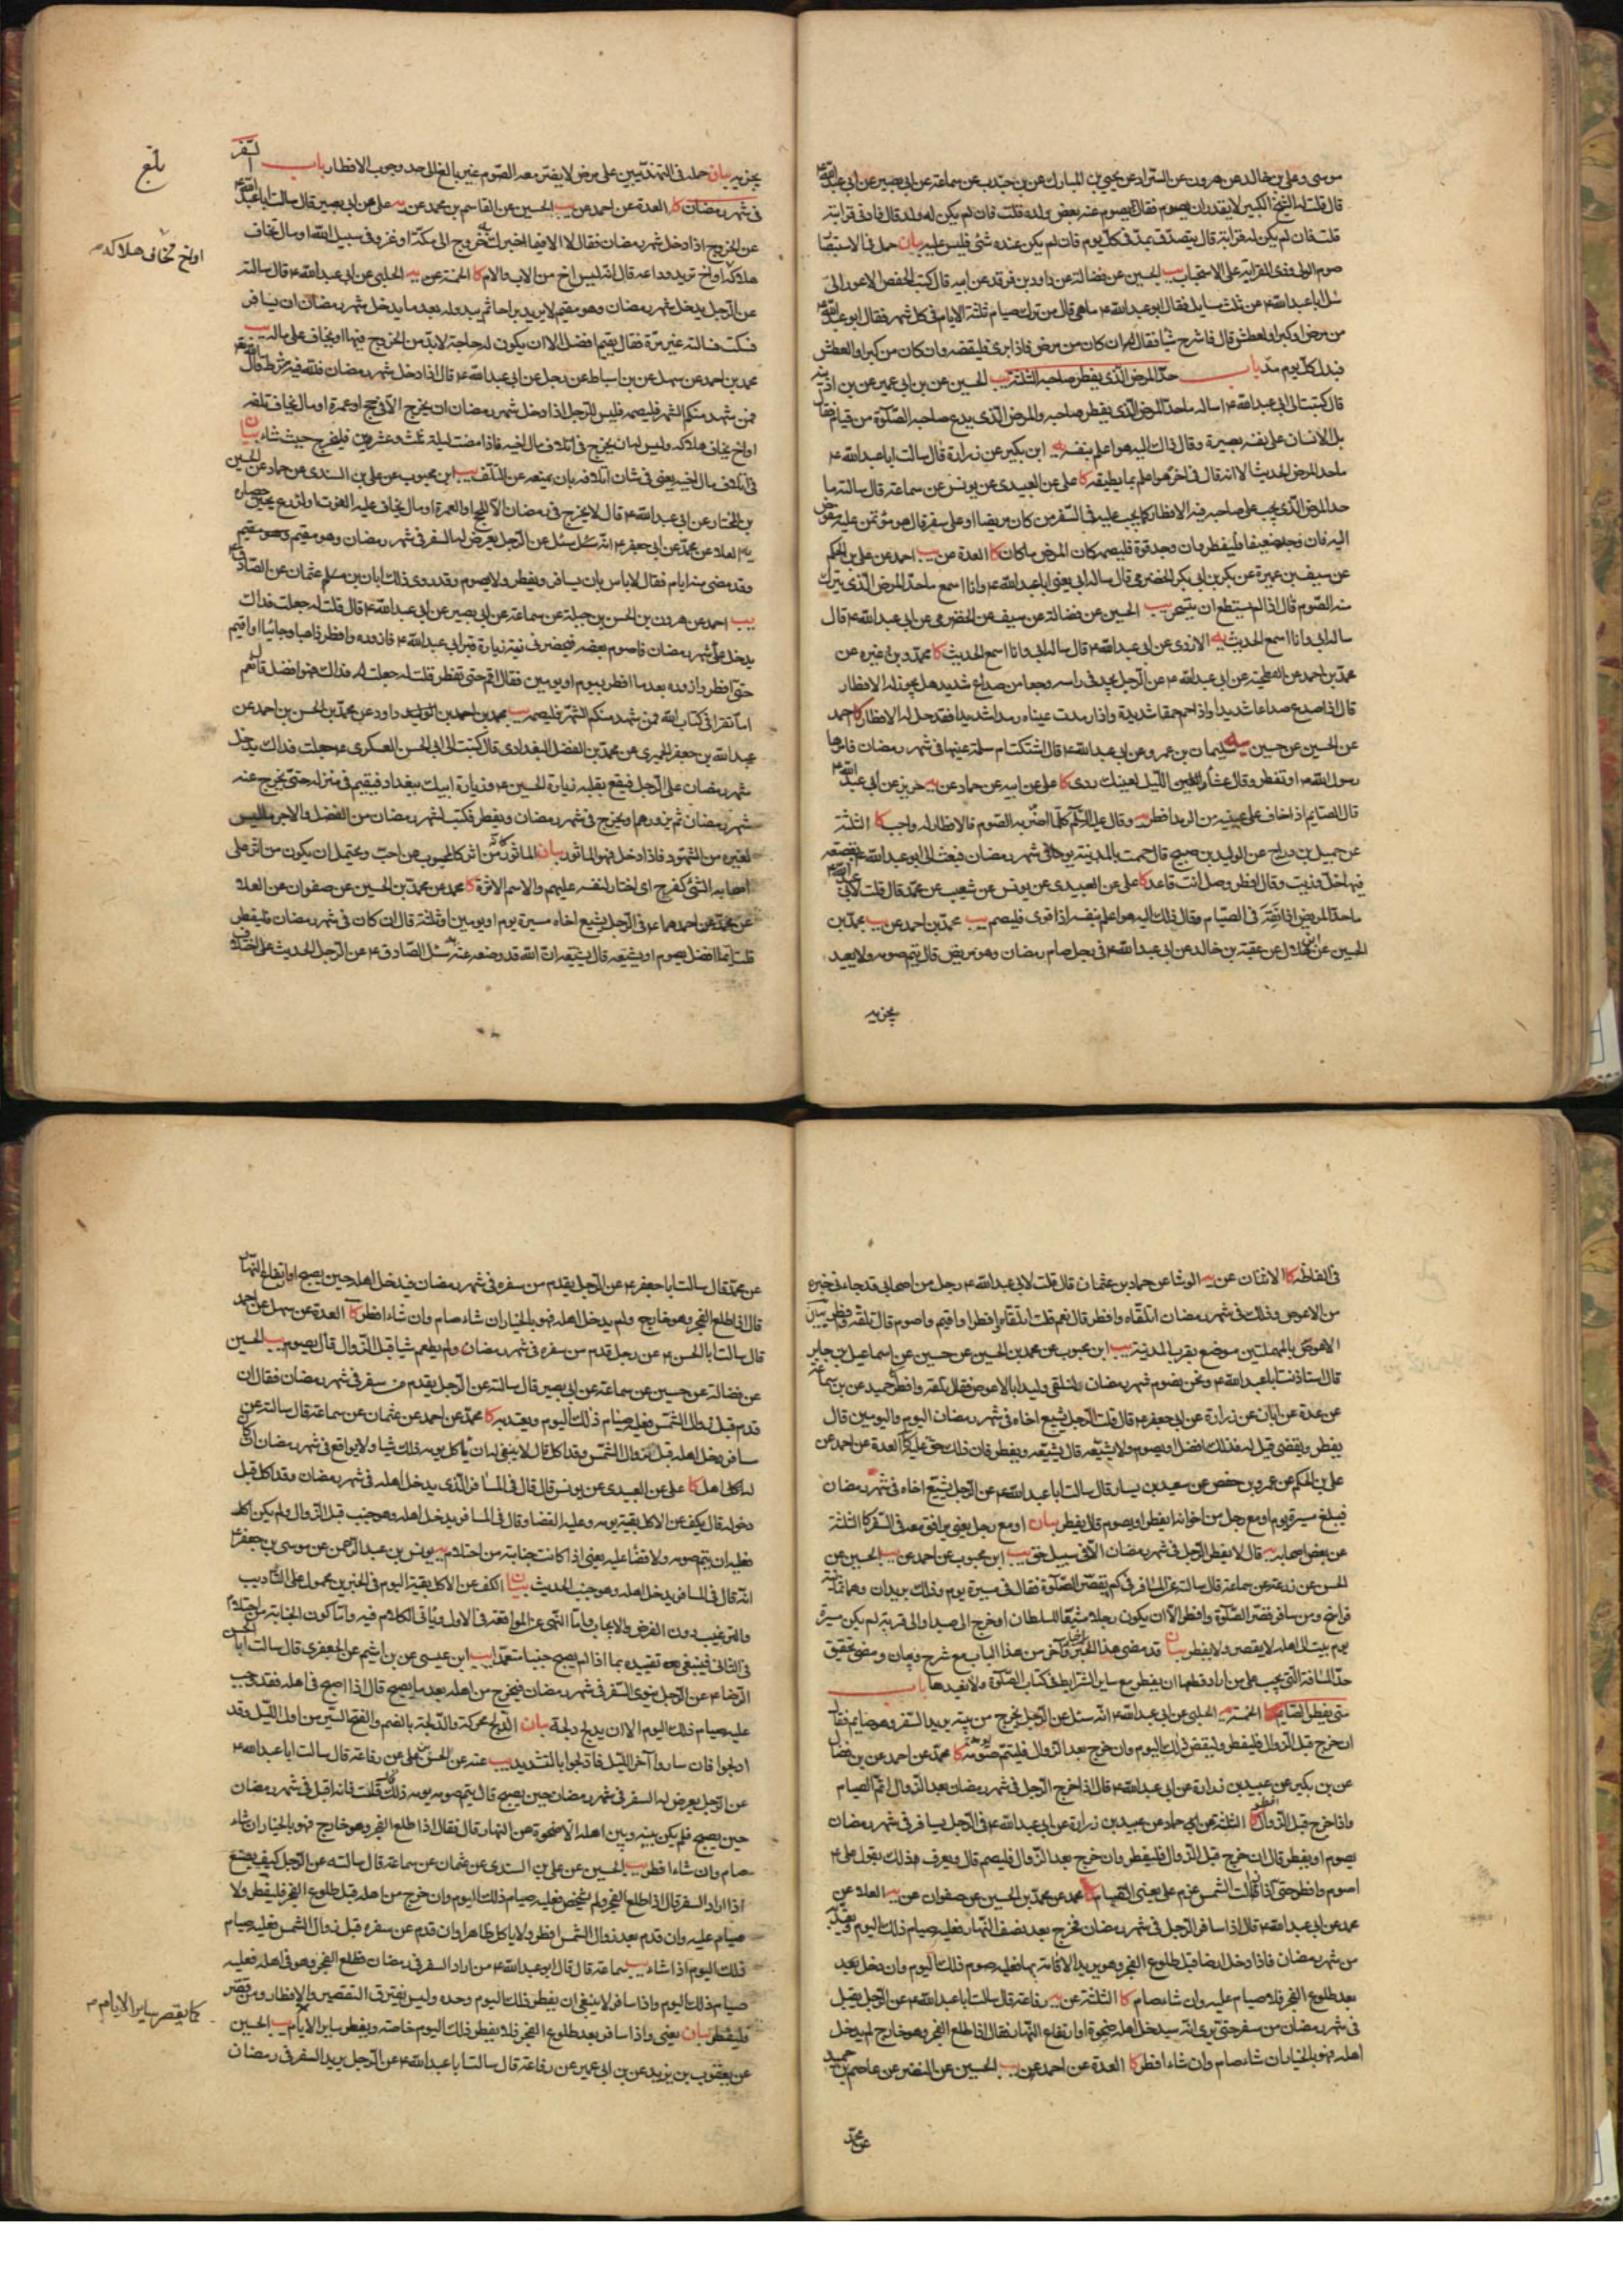 موسى وعلي بن خالد عن هرون عن السراد عن يحيى بن المبارك عن بن جندب عن سماعة عن ابى بصير عن ابى عبد الله ع
قال قلت له الشيخ الكبير لا يقدر ان يصوم فقال يصوم عنه بعض ولده قلت فان لم يكن له ولد قال فادنى قرابته
قلت فان لم يكن له قرابة قال يتصدق بمد فى كل يوم فان لم يكن عنده شئ فليس عليه بيان حمل فى الاستبصار
صوم الولى وذى القرابة على الاستحباب يب الحسين عن فضالة عن داود بن فرقد عن ابيه قال كتب حفص الاعور الىّ
سل ابا عبد الله ع عن ثلث مسايل فقال ابو عبد الله ع ما هى قال من ترك صيام ثلثة الايام فى كل شهر فقال ابو عبد الله ع
من مرض او كبر او لعطش قال فاشرح شيئا فقال ان كان من مرض فاذا برئ فليقضه وان كان من كبر او لعطش
فبدل كل يوم مد باب حد المرض الذى يفطر صاحبه الثلثة يب الحسين عن بن ابى عمير عن بن اذينة
قال كتبت الى ابى عبد الله ع اساله ما حد المرض الذى يفطر صاحبه والمرض الذى يدع صاحبه الصلوة من قيام فقال
بل الانسان على نفسه بصيرة وقال ذاك اليه هو اعلم بنفسه يه ابن بكير عن زرارة قال سالت ابا عبد الله ع
ما حد المرض الحديث الا انه قال فى اخره هو اعلم بما يطيقه كا على عن العبيدى عن يونس عن سماعة قال سالته ما
حد المرض الذى يجب على صاحبه فيه الافطار كما يجب عليه فى السفر من كان مريضا او على سفر قال هو مؤتمن عليه مفوض
اليه فان وجد ضعفا فليفطر وان وجد قوة فليصمه كان المرض ما كان كا العدة عن يب احمد عن على بن الحكم
عن سيف بن عميرة عن بكر بن ابى بكر الحضرمى قال ساله ابى يعنى ابا عبد الله ع وانا اسمع ما حد المرض الذى يترك
منه الصوم قال اذا لم يستطع ان يتسحر يب الحسين عن فضالة عن سيف عن الحضرمى عن ابى عبد الله ع قال
ساله ابى وانا اسمع الحديث يه الازدى عن ابى عبد الله ع قال ساله ابى وانا اسمع الحديث كا محمد وغيره عن
محمد بن احمد عن الفطحية عن ابى عبد الله ع عن الرجل يجد فى راسه وجعا من صداع شديد هل يجوز له الافطار
قال اذا صدع صداعا شديدا واذا حم حمى شديدة واذا رمدت عيناه رمدا شديدا فقد حل له الافطار كا احمد
عن الحسين عن حسين سليمان بن عمرو عن ابى عبد الله ع قال اشتكت ام سلمة عينها فى شهر رمضان فامرها
رسول الله ص ان تفطر وقال عشاء الليل لعينك ردى كا على عن ابيه عن حماد عن يه حريز عن ابى عبد الله ع
قال الصايم اذا خاف على عينيه من الرمد افطر يه وقال عليه السلام كلما اضر به الصوم فالافطار له واجب كا الثلثة
عن جميل بن دراج عن الوليد بن صبيح قال حممت بالمدينة يوما فى شهر رمضان فبعث الى ابو عبد الله ع بقصعة
فيها خل وزيت وقال افطر وصل وانت قاعد كا على عن العبيدى عن يونس عن شعيب عن محمد قال قلت لابى عبد الله ع
ما حد المريض اذا نقه فى الصيام وقال ذلك اليه هو اعلم بنفسه اذا قوى فليصم يب محمد بن احمد عن يب محمد بن
الحسين عن بن هلال عن عقبة بن خالد عن ابى عبد الله ع فى رجل صام رمضان وهو مريض قال يتم صومه ولا يعيد
يجزيه
يجزيه بيان حمله فى التهذيبين على مرض لا يضر معه الصوم غير بالغ الى حد وجوب الافطار باب السفر
فى شهر رمضان كا العدة عن احمد عن يب الحسين عن القاسم بن محمد عن يه على عن ابى بصير قال سالت ابا عبد الله ع
عن الخروج اذا دخل شهر رمضان فقال لا الا فيما اخبرك به خروج الى مكة او غزو فى سبيل الله او مال تخاف
هلاكه او اخ تريد وداعه قال انه ليس اخ من الاب والام كا الخمسة عن يه الحلبى عن ابى عبد الله ع قال سالته
عن الرجل يدخل شهر رمضان وهو مقيم لا يريد براحا ثم يبدو له بعد ما يدخل شهر رمضان ان يسافر
فسكت فسالته غير مرة فقال يقيم افضل الا ان يكون له حاجة لا بد من الخروج فيها او يخاف على ماله يب
محمد بن احمد عن سهل عن بن اسباط عن رجل عن ابى عبد الله ع قال اذا دخل شهر رمضان فلله فيه شرط قال الله تعالى
فمن شهد منكم الشهر فليصمه فليس للرجل اذا دخل شهر رمضان ان يخرج الا فى حج او عمرة او مال يخاف تلفه
او اخ يخاف هلاكه وليس له ان يخرج فى اتلاف مال اخيه فاذا مضت ليلة ثلث وعشرين فليخرج حيث شاء بيان
فى اتلاف مال اخيه يعنى فى شان اتلافه بان يمنعه عن التلف يب ابن محبوب عن على بن السندى عن حماد عن الحسين
بن المختار عن ابى عبد الله ع قال لا يخرج فى رمضان الا للحج او العمرة او مال يخاف عليه الفوت او لزرع يحين حصاده
يه العلاء عن محمد عن ابى جعفر ع انه سئل عن الرجل يعرض له السفر فى شهر رمضان وهو مقيم
وقد مضى منه ايام فقال لا باس بان يسافر ويفطر ولا يصوم وقد روى ذلك ابان بن عثمان عن الصادق ع
يب احمد عن هرون بن الحسن بن جبلة عن سماعة عن ابى بصير عن ابى عبد الله ع قال قلت له جعلت فداك
يدخل على شهر رمضان فاصوم بعضه فيحضرنى نية زيارة قبر ابى عبد الله ع فازوره وافطر ذاهبا وجائيا او اقيم
حتى افطر وازوره بعد ما افطر بيوم او يومين فقال اقم حتى تفطر قلت له جعلت فداك فهو افضل قال نعم
اما تقرا فى كتاب الله فمن شهد منكم الشهر فليصمه يب محمد بن احمد بن داود عن محمد بن الحسن بن احمد عن
عبد الله بن جعفر الحميرى عن محمد بن الفضل البغدادى قال كتبت الى ابى الحسن العسكرى ع جعلت فداك يدخل
شهر رمضان على الرجل فيقع بقلبه زيارة الحسين ع وزيارة ابيك ببغداد فيقيم فى منزله حتى يخرج عنه
شهر رمضان ثم يزورهم او يخرج فى شهر رمضان ويفطر فكتب لشهر رمضان من الفضل والاجر ما ليس
لغيره من الشهور فاذا دخل فهو الماثور بيان الماثور من اثر كالمحبوب من احب ويحتمل ان يكون من اثر على
اصحابه الشئ كفرح اى اختار لنفسه عليهم والاسم الاثرة كا محمد عن محمد بن الحسين عن صفوان عن العلاء
عن محمد عن احدهما ع فى الرجل يشيع اخاه مسيرة يوم او يومين او ثلثة قال ان كان فى شهر رمضان فليفطر
قلت ايما افضل يصوم او يشيعه قال يشيعه ان الله قد وضعه عنه يه سئل الصادق ع عن الرجل الحديث على اختلاف
بلغ
او اخ تخاف هلاكه
فى الفاظه كا الاثنان عن يه الوشاء عن حماد بن عثمان قال قلت لابى عبد الله ع رجل من اصحابى قد جاءنى خبره
من الاعوص وذلك فى شهر رمضان اتلقاه وافطر قال نعم قلت اتلقاه وافطر او اقيم واصوم قال تلقه وافطر بيان
الاعوص بالمهملتين موضع بقرب المدينة يب ابن محبوب عن محمد بن الحسين عن حسين عن اسماعيل بن جابر
قال استاذنت ابا عبد الله ع ونحن نصوم شهر رمضان لنلقى وليدا بالاعوص فقال تلقه وافطر كا حميد عن بن سماعة
عن عدة عن ابان عن زرارة عن ابى جعفر ع قال قلت الرجل يشيع اخاه فى شهر رمضان اليوم واليومين قال
يفطر ويقضى قيل له فذلك افضل او يصوم ولا يشيعه قال يشيعه ويفطر فان ذلك حق عليه كا العدة عن احمد عن
على بن الحكم عن عمرو بن حفص عن سعيد بن يسار قال سالت ابا عبد الله ع عن الرجل يشيع اخاه فى شهر رمضان
فيبلغ مسيرة يوم او مع رجل من اخوانه ايفطر او يصوم قال يفطر بيان او مع رجل يعنى يرافق معه فى السفر كا الثلثة
عن بعض اصحابه يه قال لا يفطر الرجل فى شهر رمضان الا فى سبيل حق يب ابن محبوب عن احمد عن يب الحسين عن
الحسن عن زرعة عن سماعة قال سالته عن المسافر فى كم يقصر الصلوة فقال فى مسيرة يوم وذلك بريدان وهما ثمانية
فراسخ ومن سافر قصر الصلوة وافطر الا ان يكون رجلا مشيعا لسلطان او خرج الى صيد او الى قرية له يكن مسيرة
يوم يبيت الى اهله لا يقصر ولا يفطر بيان قد مضى هذا الخبر واخر من هذا الباب مع شرح وبيان ومضى تحقيق
حد المسافة التى يجب على من اراد قطعها ان يفطر مع ساير الشرايط فى كتاب الصلوة ولا نعيدها باب
متى يفطر الصايم كا الخمسة يه الحلبى عن ابى عبد الله ع انه سئل عن الرجل يخرج من بيته يريد السفر وهو صايم فقال
ان خرج قبل الزوال فليفطر وليقض ذلك اليوم وان خرج بعد الزوال فليتم صومه كا محمد عن احمد عن بن فضال
عن بن بكير عن عبيد بن زرارة عن ابى عبد الله ع قال اذا خرج الرجل فى شهر رمضان بعد الزوال اتم الصيام
واذا خرج قبل الزوال افطر كا الثلثة عن ابى حماد عن عبيد بن زرارة عن ابى عبد الله ع فى الرجل يسافر فى شهر رمضان
يصوم او يفطر قال ان خرج قبل الزوال فليفطر وان خرج بعد الزوال فليصم قال ويعرف ذلك بقول على ع
اصوم وافطر حتى اذا زالت الشمس عزم على يعنى الصيام كا محمد عن محمد بن الحسين عن صفوان عن يه العلاء عن
محمد عن ابى عبد الله ع قال اذا سافر الرجل فى شهر رمضان فخرج بعد نصف النهار فعليه صيام ذلك اليوم ويعتد به
من شهر رمضان فاذا دخل ارضا قبل طلوع الفجر وهو يريد الاقامة بها فعليه صوم ذلك اليوم وان دخل بعد
بعد طلوع الفجر فلا صيام عليه وان شاء صام كا الثلثة عن يه رفاعة قال سالت ابا عبد الله ع عن الرجل يقبل
فى شهر رمضان من سفر حتى يرى انه سيدخل اهله ضحوة او ارتفاع النهار فقال اذا طلع الفجر وهو خارج لم يدخل
اهله فهو بالخيار ان شاء صام وان شاء افطر كا العدة عن احمد عن يب الحسين عن النضر عن عاصم بن حميد
عن محمد
عن محمد قال سالت ابا جعفر ع عن الرجل يقدم من سفره فى شهر رمضان فيدخل اهله حين يصبح او ارتفاع النهار
قال اذا طلع الفجر وهو خارج ولم يدخل اهله فهو بالخيار ان شاء صام وان شاء افطر كا العدة عن سهل عن احمد
قال سالت ابا الحسن ع عن رجل قدم من سفره فى شهر رمضان ولم يطعم شيئا قبل الزوال قال يصوم يب الحسين
عن فضالة عن حسين عن سماعة عن ابى بصير قال سالته عن الرجل يقدم من سفر فى شهر رمضان فقال ان
قدم قبل زوال الشمس فعليه صيام ذلك اليوم ويعتد به كا محمد عن احمد عن عثمان عن سماعة قال سالته عن
مسافر دخل اهله قبل زوال الشمس وقد اكل قال لا ينبغى له ان ياكل يومه ذلك شيئا ولا يواقع فى شهر رمضان ان كان
له اهل كا على عن العبيدى عن يونس قال قال فى المسافر الذى يدخل اهله فى شهر رمضان وقد اكل قبل
دخوله قال يكف عن الاكل بقية يومه وعليه القضاء وقال فى المسافر يدخل اهله وهو جنب قبل الزوال ولم يكن اكل
فعليه ان يتم صومه ولا قضاء عليه يعنى اذا كانت جنابته من احتلام يه يونس بن عبد الرحمن عن موسى بن جعفر ع
انه قال فى المسافر يدخل اهله وهو جنب الحديث بيان الكف عن الاكل بقية اليوم فى الخبرين محمول على التاديب
والترغيب دون الفرض والايجاب واما النهى عن المواقعة فى الاول وياتى الكلام فيه واما كون الجنابة من احتلام
فى الثانى فينبغى تقييده بما اذا لم يصبح جنبا متعمدا يب ابن عيسى عن بن اشيم عن الجعفرى قال سالت ابا الحسن
الرضا ع عن الرجل ينوى السفر فى شهر رمضان فيخرج من اهله بعد ما يصبح قال اذا اصبح فى اهله فقد وجب
عليه صيام ذلك اليوم الا ان يدلج دلجة بيان الدلج محركة والدلجة بالضم والفتح السير من اول الليل وقد
ادلجوا فان ساروا آخر الليل فادلجوا بالتشديد يب عنه عن الحسن بن على عن رفاعة قال سالت ابا عبد الله ع
عن الرجل يعرض له السفر فى شهر رمضان حين يصبح قال يتم صومه يومه ذلك قال قلت فانه اقبل فى شهر رمضان
حين يصبح فلم يكن بينه وبين اهله الا ضحوة من النهار قال فقال اذا طلع الفجر وهو خارج فهو بالخيار ان شاء
صام وان شاء افطر يب الحسين عن على بن السندى عن عثمان عن سماعة قال سالته عن الرجل كيف يصنع
اذا اراد السفر قال اذا طلع الفجر ولم يشخص فعليه صيام ذلك اليوم وان خرج من اهله قبل طلوع الفجر فليفطر ولا
صيام عليه وان قدم بعد زوال الشمس افطر ولا ياكل ظاهرا وان قدم عن سفره قبل زوال الشمس فعليه صيام
ذلك اليوم اذا شاء يب سماعة قال قال ابو عبد الله ع من اراد السفر فى رمضان فطلع الفجر وهو فى اهله فعليه
صيام ذلك اليوم واذا سافر لا ينبغى ان يفطر ذلك اليوم وحده وليس يفترق التقصير والافطار ومن قصر
فليفطر بيان يعنى واذا سافر بعد طلوع الفجر فلا يفطر ذلك اليوم خاصة ويفطر ساير الايام يب الحسين
عن يعقوب بن يزيد عن بن ابى عمير عن رفاعة قال سالت ابا عبد الله ع عن الرجل يريد السفر فى رمضان
كما يقصر ساير الايام